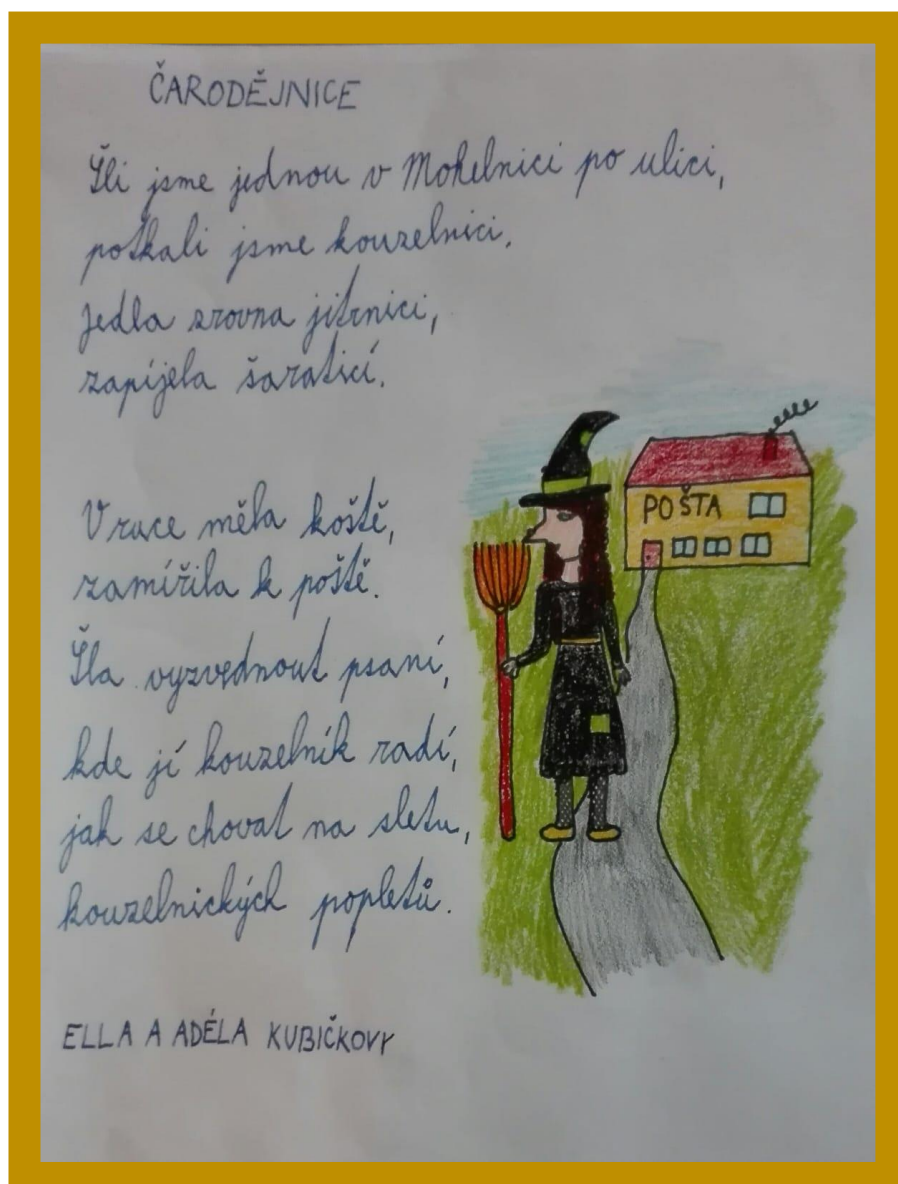 ČARODĚJNICE
Šli jsme jednou v Mohelnici po ulici,
potkali jsme kouzelnici.
Jedla zrovna jitrnici,
zapíjela šaraticí.
V ruce měla koště,
zamířila k poště.
Šla vyzvednout psaní,
kde jí kouzelník radí,
jak se chovat na sletu,
kouzelnických popletů.
POŠTA
ELLA A ADÉLA KUBIČKOVY